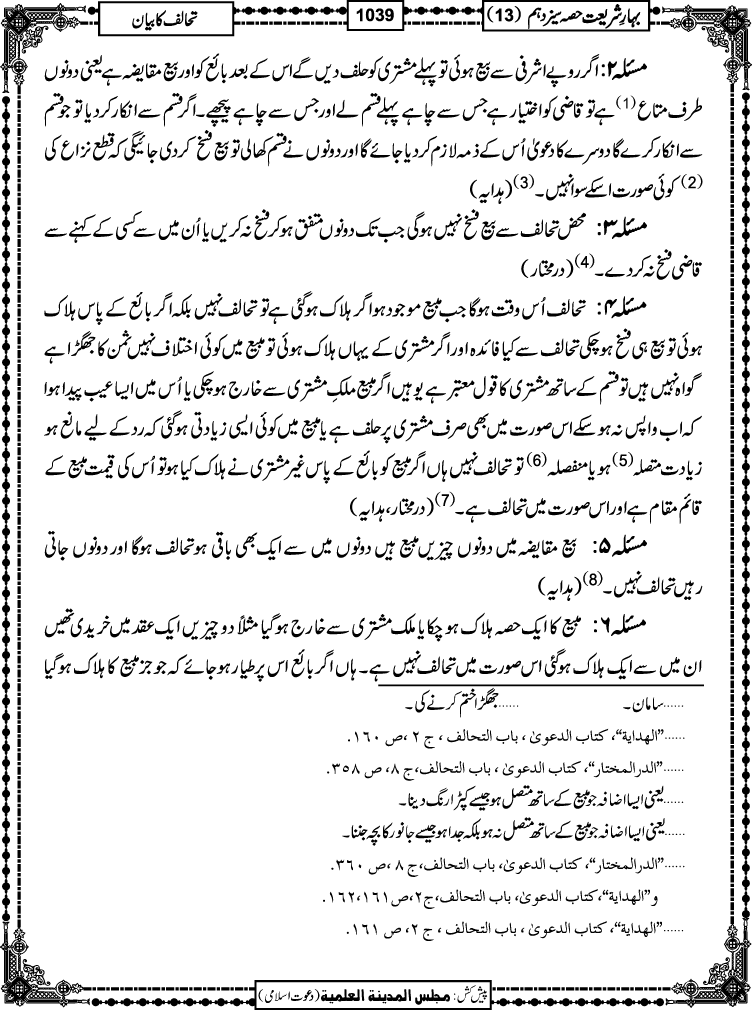 بہارِ شریعت حصہ سیزدہم (13)
1039
تحالف کا بیان
مسئلہ ۲: اگر روپے اشرفی سے بیع ہوئی تو پہلے مشتری کو حلف دیں گے اس کے بعد بائع کو اور بیع مقایضہ ہے یعنی دونوں
طرف متاع (1) ہے تو قاضی کو اختیار ہے جس سے چاہے پہلے قسم لے اور جس سے چاہے پیچھے۔ اگر قسم سے انکار کر دیا تو جو قسم
سے انکار کرے گا دوسرے کا دعویٰ اُس کے ذمہ لازم کر دیا جائے گا اور دونوں نے قسم کھا لی تو بیع فسخ کر دی جائیگی کہ قطع نزاع کی
(2) کوئی صورت اسکے سوا نہیں۔ (3) (ہدایہ)
مسئلہ ۳: محض تحالف سے بیع فسخ نہیں ہوگی جب تک دونوں متفق ہو کر فسخ نہ کریں یا اُن میں سے کسی کے کہنے سے
قاضی فسخ نہ کر دے۔ (4) (درمختار)
مسئلہ ۴: تحالف اُس وقت ہوگا جب مبیع موجود ہو اگر ہلاک ہوگئی ہے تو تحالف نہیں بلکہ اگر بائع کے پاس ہلاک
ہوئی تو بیع ہی فسخ ہو چکی تحالف سے کیا فائدہ اور اگر مشتری کے یہاں ہلاک ہوئی تو مبیع میں کوئی اختلاف نہیں ثمن کا جھگڑا ہے
گواہ نہیں ہیں تو قسم کے ساتھ مشتری کا قول معتبر ہے یوہیں اگر مبیع ملکِ مشتری سے خارج ہو چکی یا اُس میں ایسا عیب پیدا ہوا
کہ اب واپس نہ ہو سکے اس صورت میں بھی صرف مشتری پر حلف ہے یا مبیع میں کوئی ایسی زیادتی ہوگئی کہ رد کے لیے مانع ہو
زیادت متصلہ (5) ہو یا منفصلہ (6) تو تحالف نہیں ہاں اگر مبیع کو بائع کے پاس غیر مشتری نے ہلاک کیا ہو تو اُس کی قیمت مبیع کے
قائم مقام ہے اور اس صورت میں تحالف ہے۔ (7) (درمختار، ہدایہ)
مسئلہ ۵: بیع مقایضہ میں دونوں چیزیں مبیع ہیں دونوں میں سے ایک بھی باقی ہو تحالف ہوگا اور دونوں جاتی
رہیں تحالف نہیں۔ (8) (ہدایہ)
مسئلہ ۶: مبیع کا ایک حصہ ہلاک ہو چکا یا ملک مشتری سے خارج ہو گیا مثلاً دو چیزیں ایک عقد میں خریدی تھیں
ان میں سے ایک ہلاک ہوگئی اس صورت میں تحالف نہیں ہے۔ ہاں اگر بائع اس پر طیار ہو جائے کہ جو جز مبیع کا ہلاک ہو گیا
......سامان۔ ......جھگڑا ختم کرنے کی۔
......”الهداية“، كتاب الدعوىٰ ، باب التحالف ، ج ۲ ،ص ۱۶۰.
......”الدرالمختار“، كتاب الدعوىٰ ، باب التحالف،ج ۸، ص ۳۵۸.
......یعنی ایسا اضافہ جو مبیع کے ساتھ متصل ہو جیسے کپڑا رنگ دینا۔
......یعنی ایسا اضافہ جو مبیع کے ساتھ متصل نہ ہو بلکہ جدا ہو جیسے جانور کا بچہ جننا۔
......”الدرالمختار“، كتاب الدعوىٰ، باب التحالف،ج ۸ ،ص ۳۶۰.
و”الهداية“،كتاب الدعوىٰ، باب التحالف،ج۲،ص۱۶۱،۱۶۲.
......”الهداية“، كتاب الدعوىٰ ، باب التحالف ، ج ۲، ص ۱۶۱.
پیش کش: مجلس المدینۃ العلمیۃ (دعوت اسلامی)